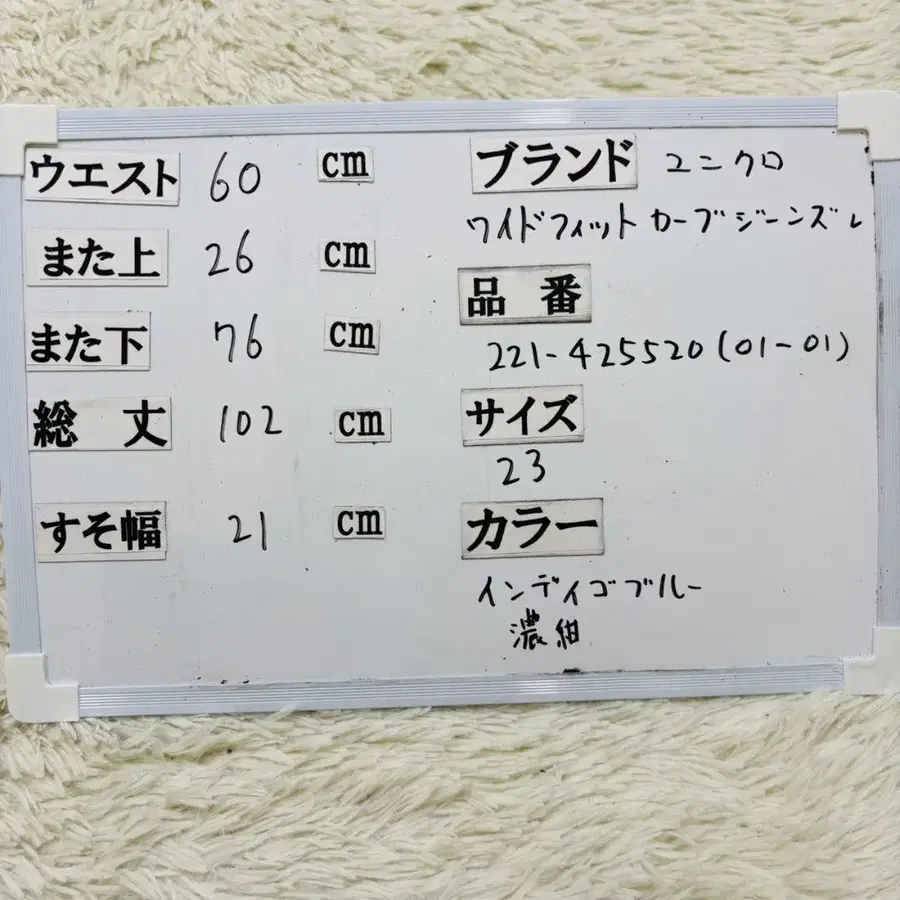 ウエスト 60 cm
また上 26 cm
また下 76 cm
総丈 102 cm
すそ幅 21 cm
ブランド ユニクロ
ワイドフィットカーブジーンズ
品番
221-425520(01-01)
サイズ
23
カラー
インディゴブルー
濃紺